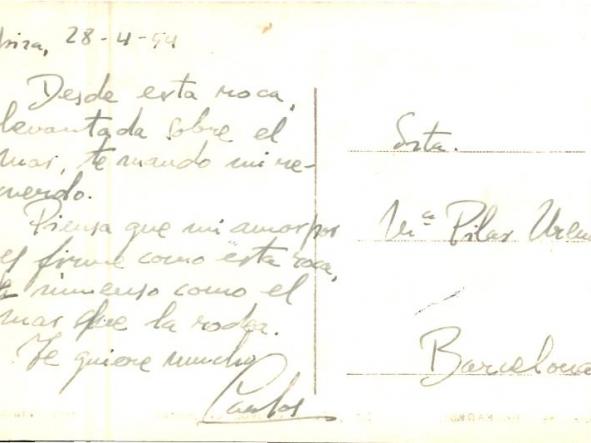 28-4-54
Desde esta roca,
levantada sobre el
mar, te mando mi re-
cuerdo.
Piensa que mi amor por
es firme como esta roca,
inmenso como el
mar que la rodea.
Te quiere mucho
Carlos
Srta.
Mª Pilar
Barcelona